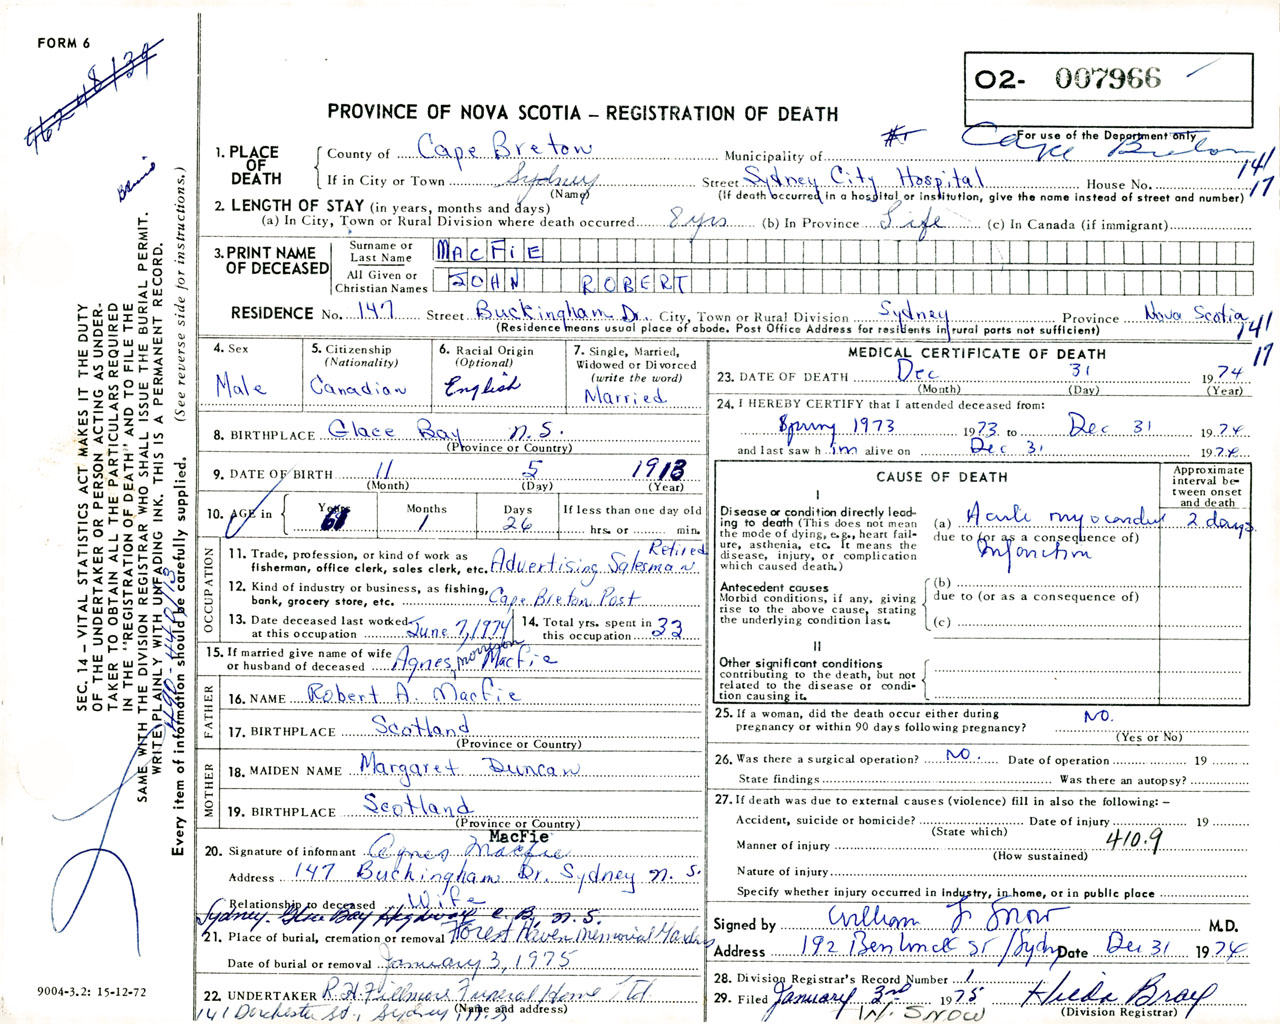 FORM 6
46248139
O2- 007966
PROVINCE OF NOVA SCOTIA – REGISTRATION OF DEATH
For use of the Department only
1. PLACE OF DEATH
County of Cape Breton Municipality of Cape Breton
If in City or Town Sydney (Name) Street Sydney City Hospital House No.
(If death occurred in a hospital or institution, give the name instead of street and number)
141
17
2. LENGTH OF STAY (in years, months and days)
(a) In City, Town or Rural Division where death occurred 8 yrs (b) In Province Life (c) In Canada (if immigrant)
3. PRINT NAME OF DECEASED
Surname or Last Name MACFIE
All Given or Christian Names JOHN ROBERT
RESIDENCE No. 147 Street Buckingham Dr. City, Town or Rural Division Sydney Province Nova Scotia
(Residence means usual place of abode. Post Office Address for residents in rural parts not sufficient)
141
17
4. Sex Male
5. Citizenship (Nationality) Canadian
6. Racial Origin (Optional) English
7. Single, Married, Widowed or Divorced (write the word) Married
8. BIRTHPLACE Glace Bay N.S.
(Province or Country)
9. DATE OF BIRTH 11 5 1913
(Month) (Day) (Year)
10. AGE in Years 61 Months 1 Days 26 If less than one day old hrs. or min.
OCCUPATION
11. Trade, profession, or kind of work as fisherman, office clerk, sales clerk, etc. Retired Advertising Salesman
12. Kind of industry or business, as fishing, bank, grocery store, etc. Cape Breton Post
13. Date deceased last worked at this occupation June 7, 1974
14. Total yrs. spent in this occupation 33
15. If married give name of wife or husband of deceased Agnes, Morrison MacFie
FATHER
16. NAME Robert A. MacFie
17. BIRTHPLACE Scotland
(Province or Country)
MOTHER
18. MAIDEN NAME Margaret Duncan
19. BIRTHPLACE Scotland
(Province or Country)
MacFie
20. Signature of informant Agnes MacFie
Address 147 Buckingham Dr. Sydney N. S.
Relationship to deceased Wife
Sydney. Glace Bay Highway C. B, N. S.
21. Place of burial, cremation or removal Forest Haven Memorial Gardens
Date of burial or removal January 3, 1975
22. UNDERTAKER R.H. Fillmore Funeral Home Ltd
(Name and address)
141 Dorchester St., Sydney, N.S
MEDICAL CERTIFICATE OF DEATH
23. DATE OF DEATH Dec 31 1974
(Month) (Day) (Year)
24. I HEREBY CERTIFY that I attended deceased from:
Spring 1973 1973 to Dec 31 1974
and last saw him alive on Dec 31 1974
CAUSE OF DEATH
Approximate interval between onset and death
I
Disease or condition directly leading to death (This does not mean the mode of dying, e.g., heart failure, asthenia, etc. It means the disease, injury, or complication which caused death.)
(a) Acute myocardial 2 days
due to (or as a consequence of)
Infarction
Antecedent causes
Morbid conditions, if any, giving rise to the above cause, stating the underlying condition last.
(b)
due to (or as a consequence of)
(c)
II
Other significant conditions contributing to the death, but not related to the disease or condition causing it.
25. If a woman, did the death occur either during pregnancy or within 90 days following pregnancy? NO.
(Yes or No)
26. Was there a surgical operation? NO. Date of operation 19
State findings Was there an autopsy?
27. If death was due to external causes (violence) fill in also the following: –
Accident, suicide or homicide? Date of injury 19
(State which)
Manner of injury 410.9
(How sustained)
Nature of injury
Specify whether injury occurred in industry, in home, or in public place
Signed by William J Snow M.D.
Address 192 Bentinck St / Sydney Date Dec 31 1974
28. Division Registrar's Record Number 1
29. Filed January 3rd 1975 Hilda Bray
(Division Registrar)
W. SNOW
SEC. 14 – VITAL STATISTICS ACT MAKES IT THE DUTY
OF THE UNDERTAKER OR PERSON ACTING AS UNDER-
TAKER TO OBTAIN ALL THE PARTICULARS REQUIRED
IN THE "REGISTRATION OF DEATH" AND TO FILE THE
SAME WITH THE DIVISION REGISTRAR WHO SHALL ISSUE THE BURIAL PERMIT.
WRITE PLAINLY WITH UNFADING INK. THIS IS A PERMANENT RECORD.
Every item of information should be carefully supplied. (See reverse side for instructions.)
9004-3.2: 15-12-72